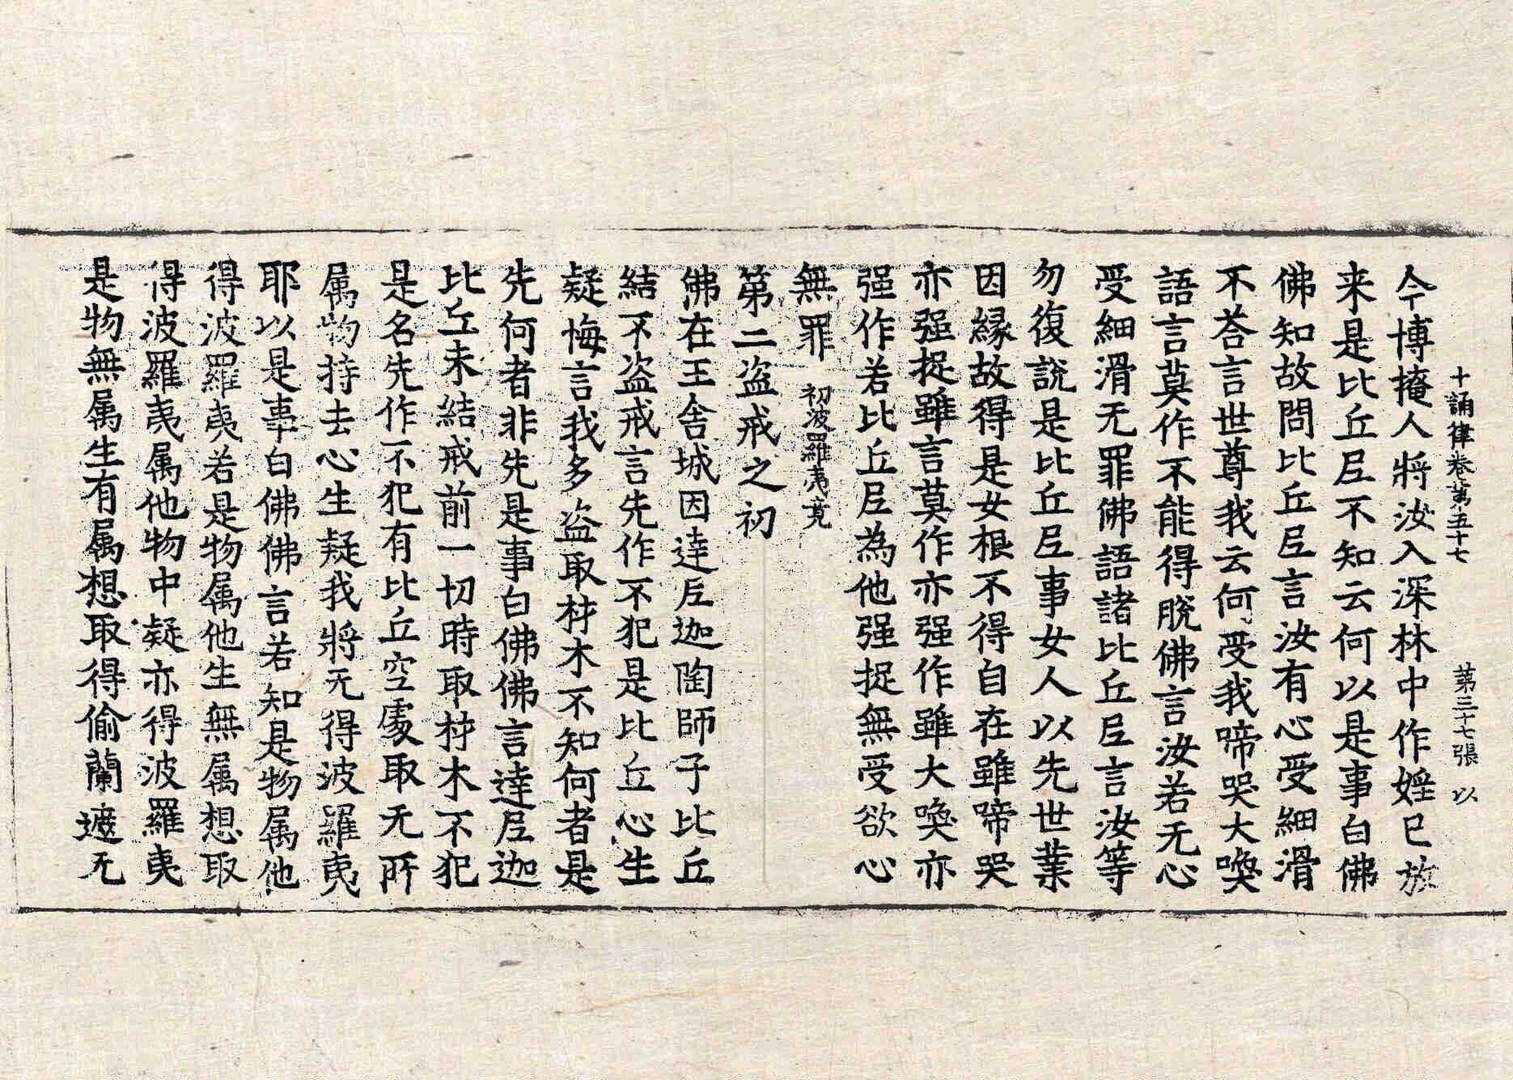 十誦律卷第五十七　第三十七張　以
令博掩人將汝入深林中作婬已放
来是比丘𡰱不知云何以是事白佛
佛知故問比丘𡰱言汝有心受細滑
不荅言世尊我云何受我啼哭大喚
語言莫作不能得脫佛言汝若无心
受細滑无罪佛語諸比丘𡰱言汝等
勿復說是比丘𡰱事女人以先世業
因緣故得是女根不得自在雖啼哭
亦强捉雖言莫作亦强作雖大喚亦
强作若比丘𡰱為他强捉無受欲心
無罪　初波羅夷竟
第二盜戒之初
佛在王舍城因達𡰱迦陶師子比丘
結不盜戒言先作不犯是比丘心生
疑悔言我多盜取材木不知何者是
先何者非先是事白佛佛言達𡰱迦
比丘未結戒前一切時取材木不犯
是名先作不犯有比丘空處取无所
属物持去心生疑我將无得波羅夷
耶以是事白佛佛言若知是物属他
得波羅夷若是物属他生無属想取
得波羅夷属他物中疑亦得波羅夷
是物無属生有属想取得偷蘭遮无